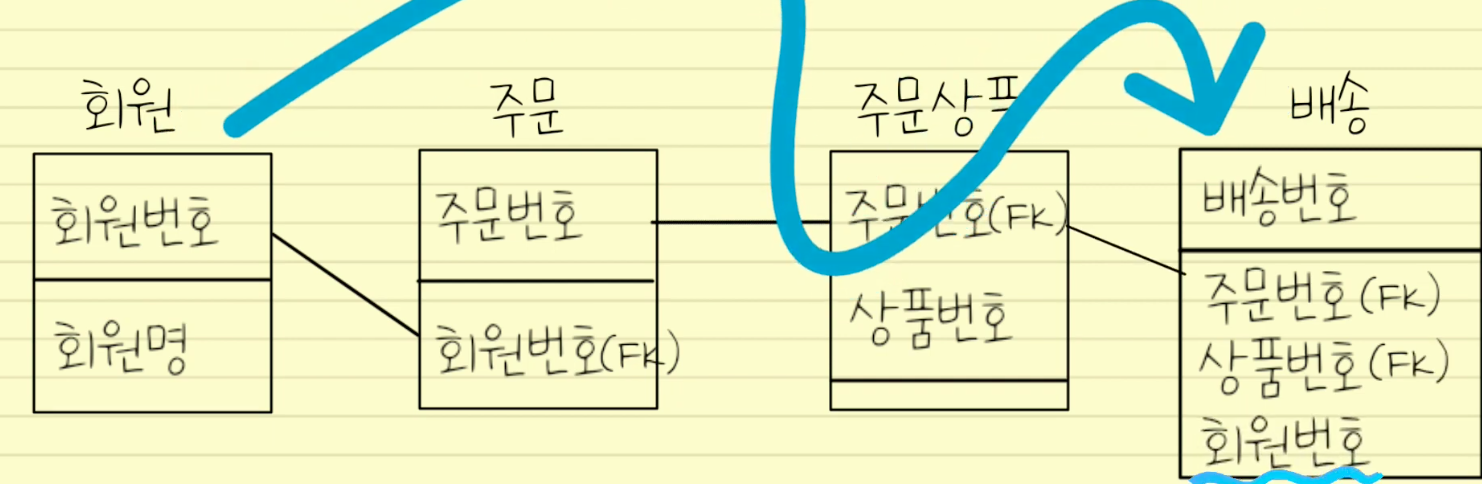 회원
회원번호
회원명
주문
주문번호
회원번호(FK)
주문상품
주문번호(FK)
상품번호
배송
배송번호
주문번호(FK)
상품번호(FK)
회원번호